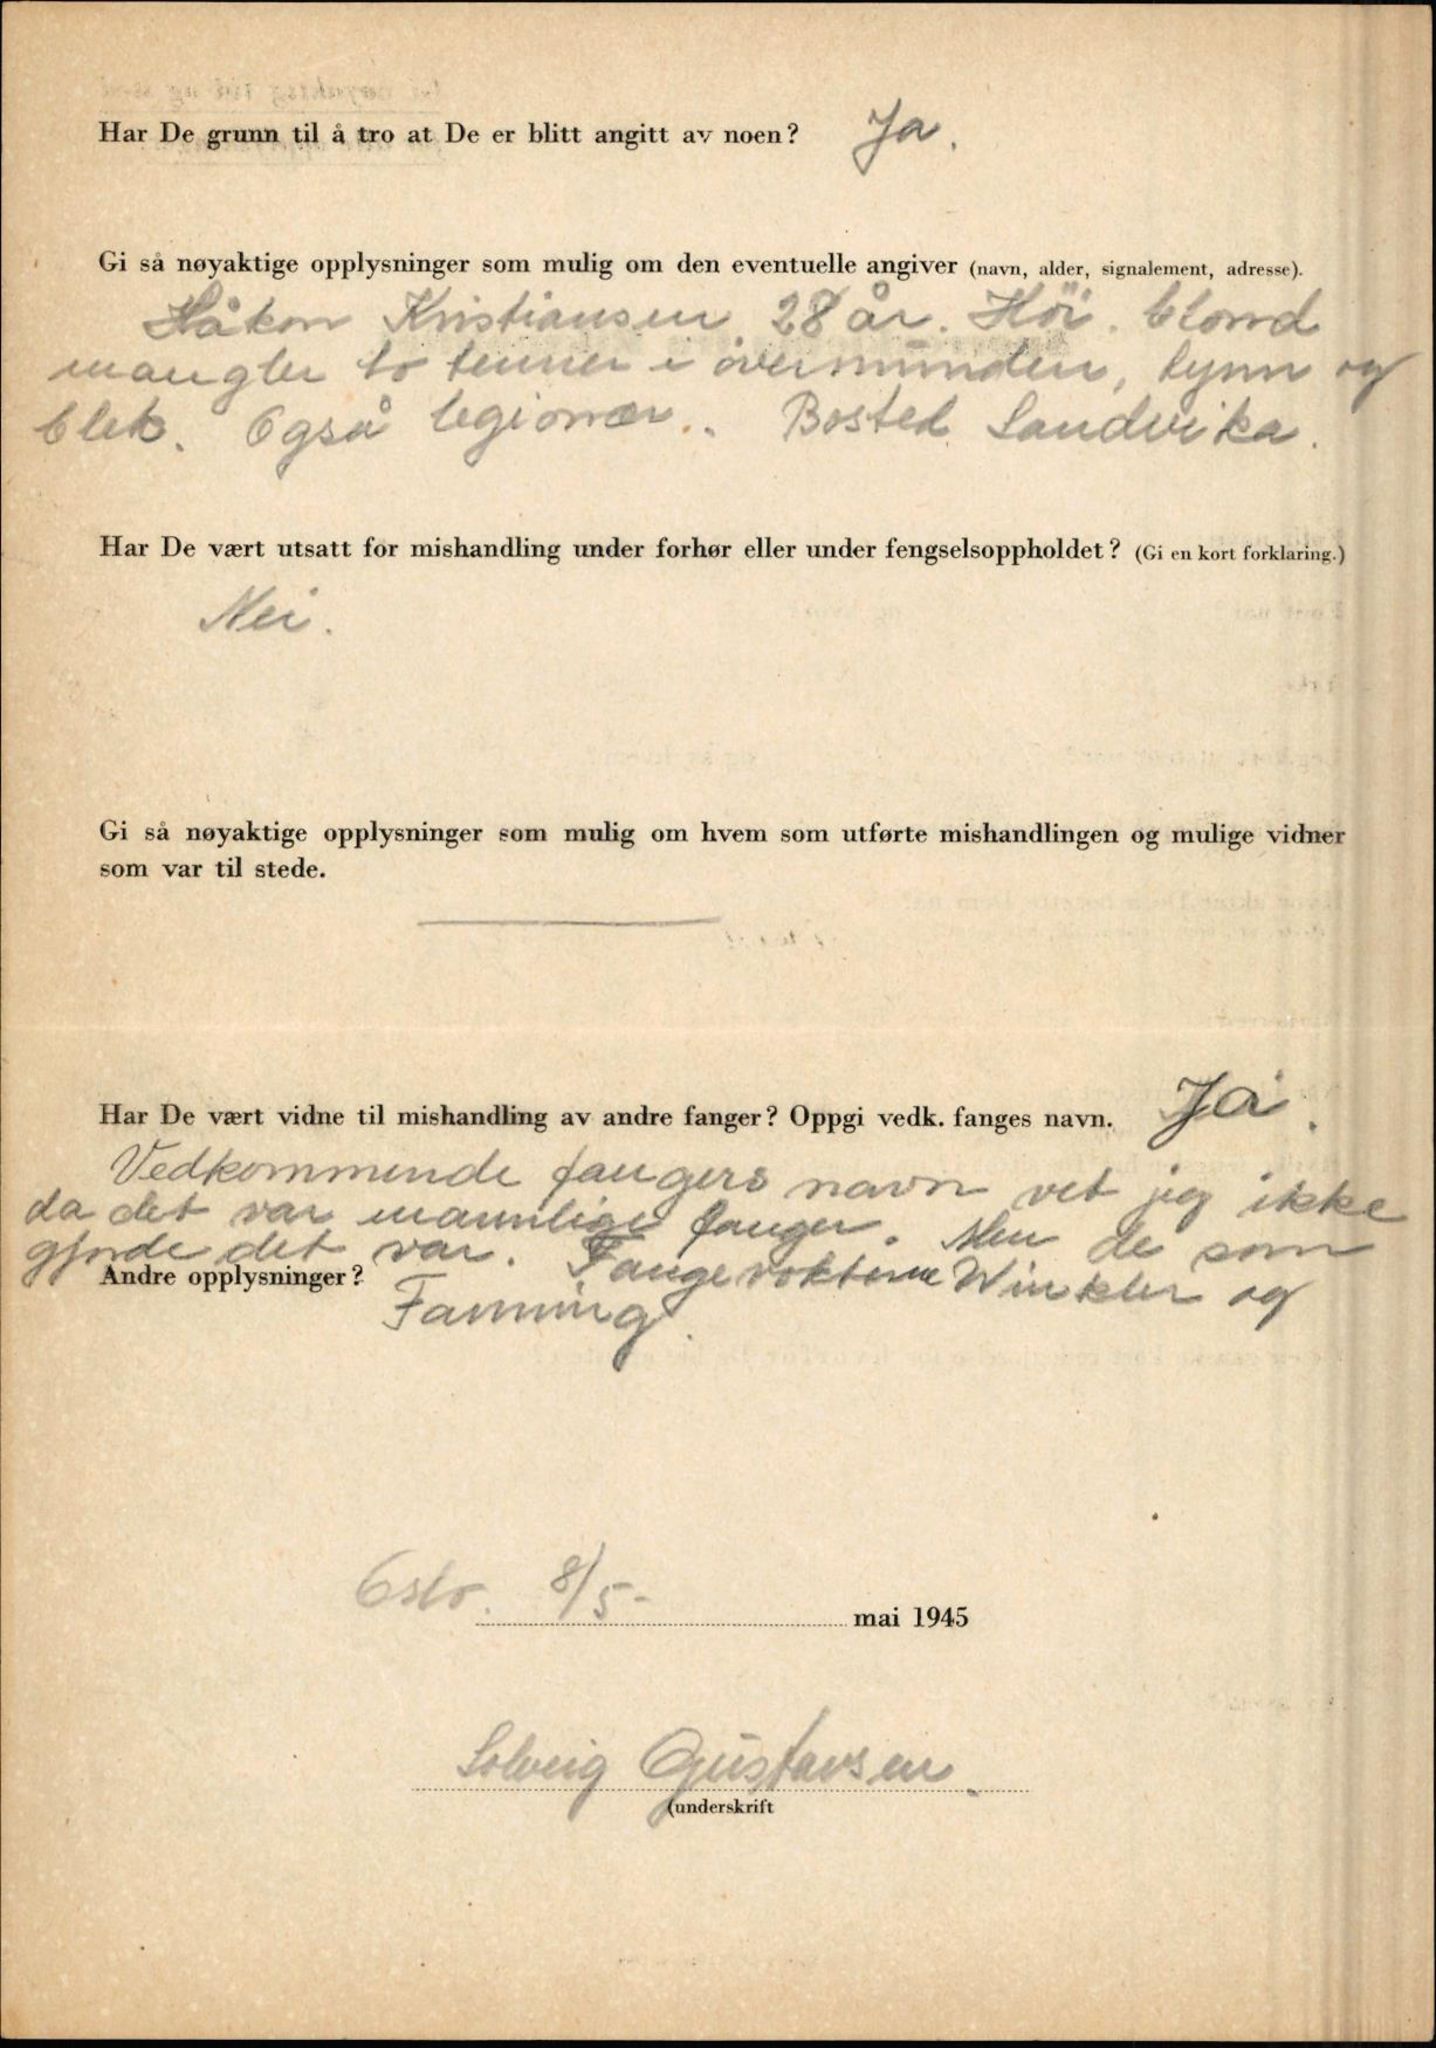 Har De grunn til å tro at De er blitt angitt av noen? Ja.
Gi så nøyaktige opplysninger som mulig om den eventuelle angiver (navn, alder, signalement, adresse).
Håkon Kristiansen 28 år. Höi. blond
mangler to tenner i overmunden, tynn og
blek. Også legionær.. Bosted Sandvika.
Har De vært utsatt for mishandling under forhør eller under fengselsoppholdet? (Gi en kort forklaring.)
Nei.
Gi så nøyaktige opplysninger som mulig om hvem som utførte mishandlingen og mulige vidner
som var til stede.
Har De vært vidne til mishandling av andre fanger? Oppgi vedk. fanges navn. Ja.
Vedkommende fangers navn vet jeg ikke
da det var mannlige fanger. Men de som
gjorde det var. Fangevokterne Winkler og
Andre opplysninger?
Fanning.
Oslo. 8/5- mai 1945
Solveig Gustavsen.
(underskrift